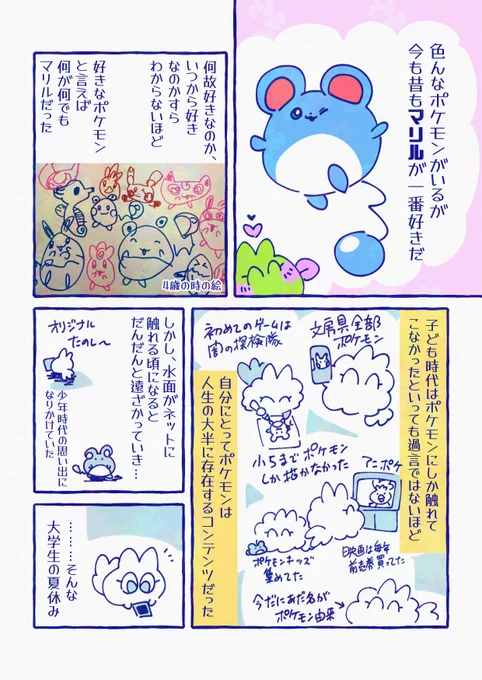 色んなポケモンがいるが
今も昔もマリルが一番好きだ
何故好きなのか、
いつから好き
なのかすら
わからないほど
好きなポケモン
と言えば
何が何でも
マリルだった
4歳の時の絵
子ども時代はポケモンにしか触れて
こなかったといっても過言ではないほど
文房具全部
ポケモン
初めてのゲームは
闇の探検隊
小5までポケモン
しか描かなかった
アニポケ
ポケモンキッズ
集めてた
映画は毎年
前売券買ってた
今だにあだ名が
ポケモン由来
自分にとってポケモンは
人生の大半に存在するコンテンツだった
しかし、水面がネットに
触れる頃になると
だんだんと遠ざかっていき…
オリジナル
たのし〜
少年時代の思い出に
なりかけていた
………そんな
大学生の夏休み